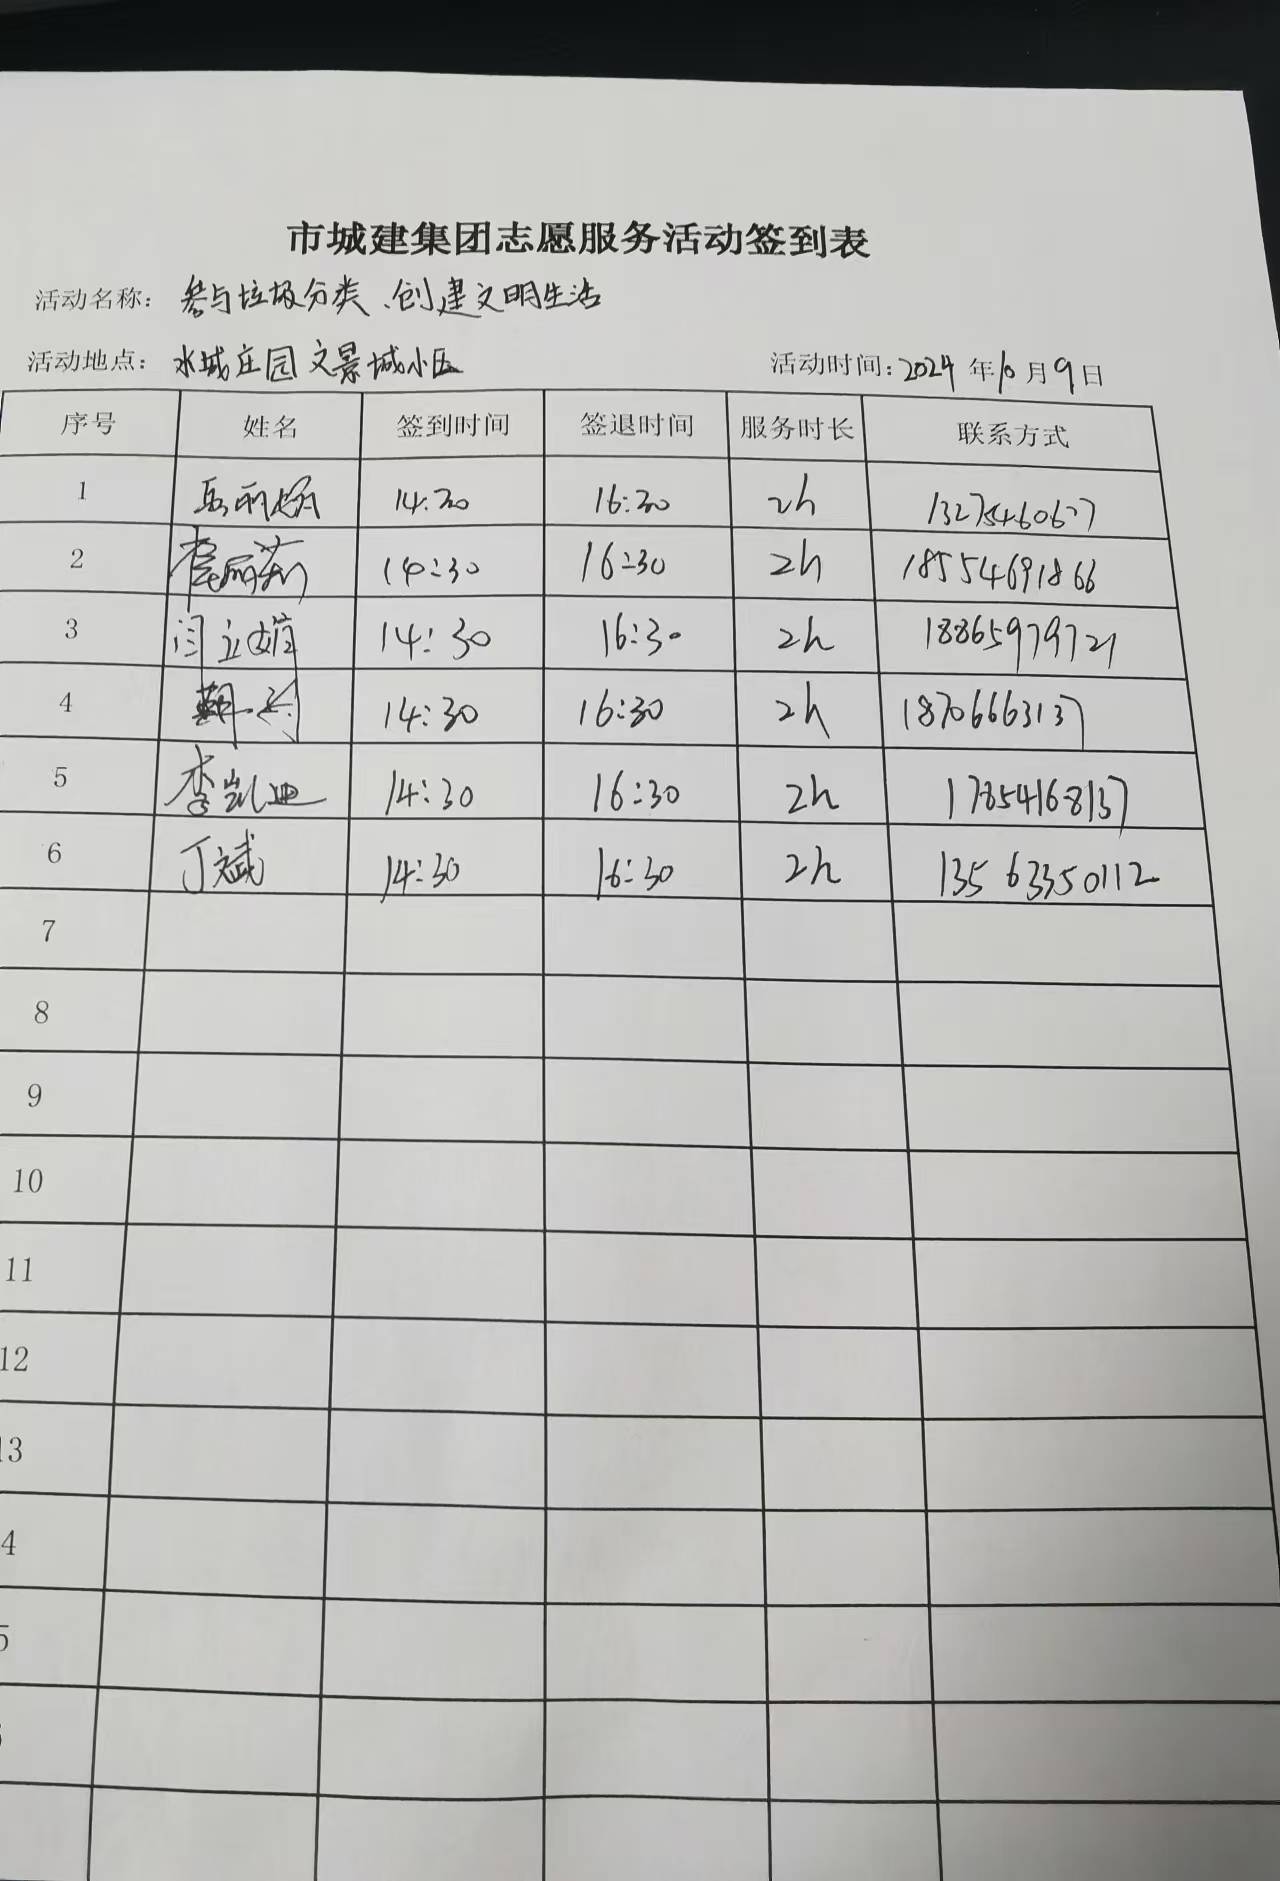 市城建集团志愿服务活动签到表
活动名称: 参与垃圾分类、创建文明生活
活动地点: 水城庄园 文景城小区 活动时间: 2024 年 10 月 9 日
序号 姓名 签到时间 签退时间 服务时长 联系方式
1 14:30 16:30 2h
2 14:30 16:30 2h 18554691866
3 闫立娟 14:30 16:30 2h 18865979721
4 14:30 16:30 2h 18706663137
5 李凯迪 14:30 16:30 2h 17854168137
6 丁斌 14:30 16:30 2h 13563350112
7
8
9
10
11
12
13
4
5